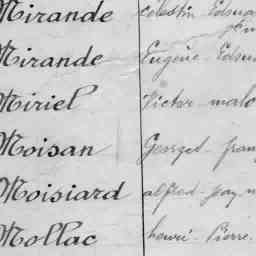 Mirande Célestin Edmo
Mirande Eugène Edmo
Miriel Victor malo
Moisan Georges fran
Moisiard alfred
Mollac henri Pierre